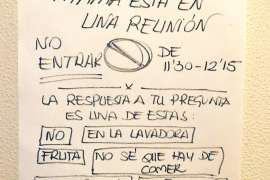 ESTÁ EN
UNA REUNIÓN
NO ENTRAR DE 11'30-12'15
x
LA RESPUESTA A TU PREGUNTA
ES UNA DE ESTAS:
NO EN LA LAVADORA
FRUTA NO SÉ QUE HAY DE COMER